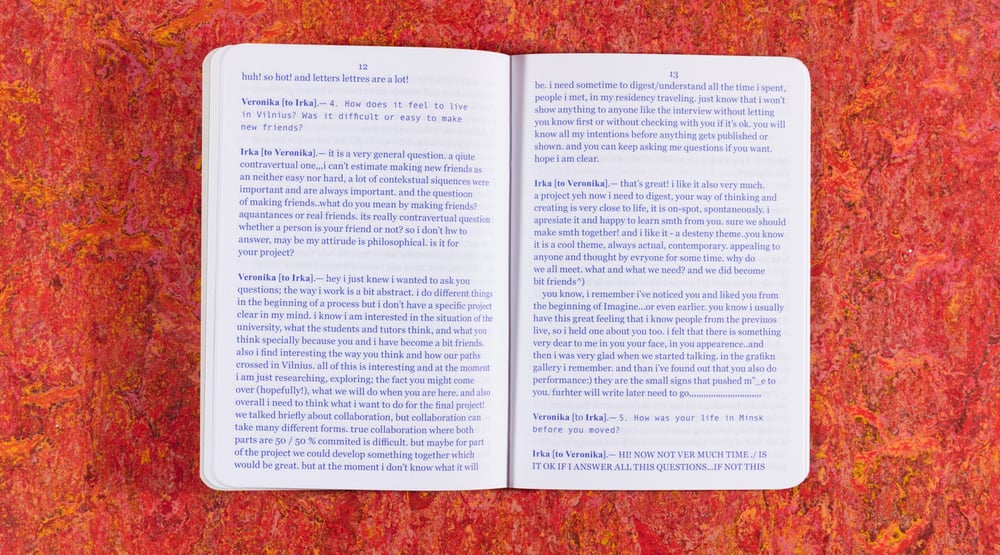 12
huh! so hot! and letters lettres are a lot!
Veronika [to Irka].— 4. How does it feel to live
in Vilnius? Was it difficult or easy to make
new friends?
Irka [to Veronika].— it is a very general question. a qiute
contravertual one,,,i can't estimate making new friends as
an neither easy nor hard, a lot of contekstual siquences were
important and are always important. and the questioon
of making friends..what do you mean by making friends?
aquantances or real friends. its really contravertual question
whether a person is your friend or not? so i don't hw to
answer, may be my attirude is philosophical. is it for
your project?
Veronika [to Irka].— hey i just knew i wanted to ask you
questions; the way i work is a bit abstract. i do different things
in the beginning of a process but i don't have a specific project
clear in my mind. i know i am interested in the situation of the
university, what the students and tutors think, and what you
think specially because you and i have become a bit friends.
also i find interesting the way you think and how our paths
crossed in Vilnius. all of this is interesting and at the moment
i am just researching, exploring; the fact you might come
over (hopefully!), what we will do when you are here. and also
overall i need to think what i want to do for the final project!
we talked briefly about collaboration, but collaboration can
take many different forms. true collaboration where both
parts are 50 / 50 % commited is difficult. but maybe for part
of the project we could develop something together which
would be great. but at the moment i don't know what it will
13
be. i need sometime to digest/understand all the time i spent,
people i met, in my residency traveling. just know that i won't
show anything to anyone like the interview without letting
you know first or without checking with you if it's ok. you will
know all my intentions before anything gets published or
shown. and you can keep asking me questions if you want.
hope i am clear.
Irka [to Veronika].— that's great! i like it also very much.
a project yeh now i need to digest, your way of thinking and
creating is very close to life, it is on-spot, spontaneously. i
apresiate it and happy to learn smth from you. sure we should
make smth together! and i like it - a desteny theme..you know
it is a cool theme, always actual, contemporary. appealing to
anyone and thought by evryone for some time. why do
we all meet. what and what we need? and we did become
bit friends^)
you know, i remember i've noticed you and liked you from
the beginning of Imagine...or even earlier. you know i usually
have this great feeling that i know people from the previuos
live, so i held one about you too. i felt that there is something
very dear to me in you your face, in you appearence..and
then i was very glad when we started talking. in the grafikn
gallery i remember. and than i've found out that you also do
performance:) they are the small signs that pushed m"_e to
you. furhter will write later need to go,,,,,,,,,,,,,,,,,,,,,,,,,,,,,,
Veronika [to Irka].— 5. How was your life in Minsk
before you moved?
Irka [to Veronika].— HI! NOW NOT VER MUCH TIME ./ IS
IT OK IF I ANSWER ALL THIS QUESTIONS...IF NOT THIS